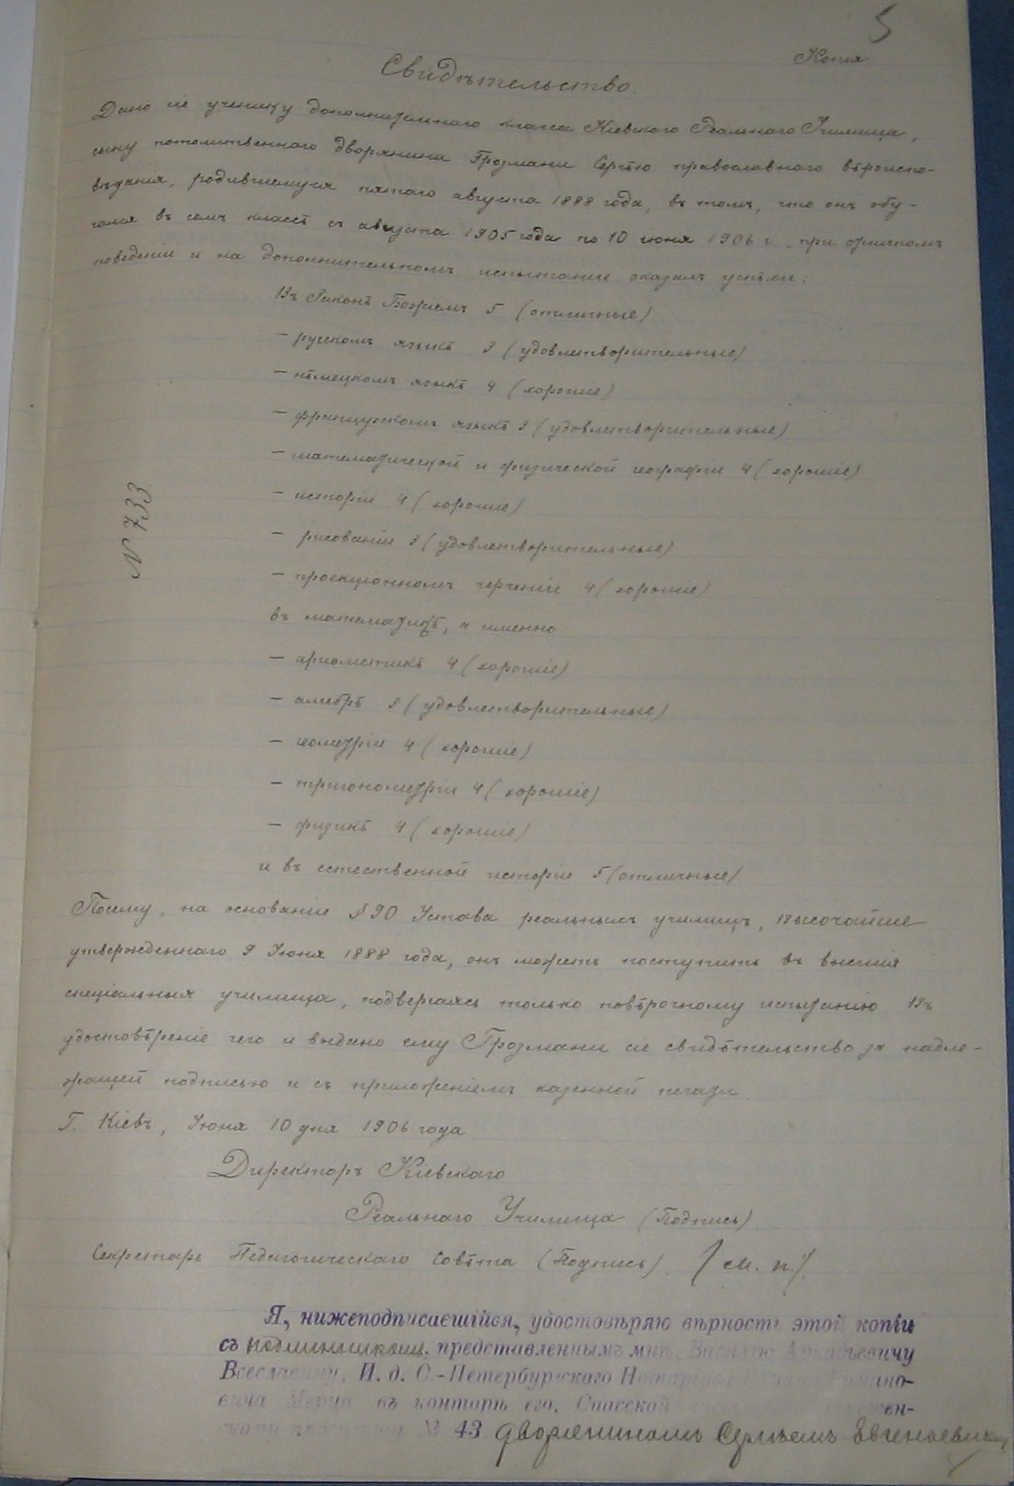 5
Копія
Свидѣтельство
Дано сіе ученику дополнительнаго класса Кіевскаго Реальнаго Училища,
сыну потомственнаго дворянина Грозмани Сергѣю православнаго вѣроиспо-
вѣданія, родившемуся пятаго августа 1888 года, въ томъ, что онъ обу-
чался въ семъ классѣ съ августа 1905 года по 10 июня 1906 г. при отличномъ
поведеніи и на дополнительномъ испытаніи оказалъ успѣхи:
Въ Законѣ Божіемъ 5 (отличные)
- русскомъ языкѣ 3 (удовлетворительные)
- нѣмецкомъ языкѣ 4 (хорошіе)
- французскомъ языкѣ 3 (удовлетворительные)
- математической и физической географіи 4 (хорошіе)
- исторіи 4 (хорошіе)
- рисованіи 3 (удовлетворительные)
- проекціонномъ черченіи 4 (хорошіе)
въ математикѣ, а именно
- ариѳметикѣ 4 (хорошіе)
- алгебрѣ 3 (удовлетворительные)
- геометріи 4 (хорошіе)
- тригонометріи 4 (хорошіе)
- физикѣ 4 (хорошіе)
и въ естественной исторіи 5 (отличные)
№ 733
Посему, на основаніи § 90 Устава реальныхъ училищъ, Высочайше
утвержденнаго 9 Июня 1888 года, онъ можетъ поступить въ высшія
спеціальныя училища, подвергаясь только повѣрочному испытанію Въ
удостовѣреніе чего и выдано ему Грозмани сіе свидѣтельство за надле-
жащей подписью и съ приложеніемъ казенной печати.
Г. Кіевъ, Июня 10 дня 1906 года
Директоръ Кіевскаго
Реальнаго Училища (Подпись)
Секретарь Педагогическаго Совѣта (Подпись) (М. П.)
Я, нижеподписавшійся, удостовѣряю вѣрность этой копіи
съ подлинникомъ, представленнымъ мнѣ, Василію Аркадьевичу
И. д. С.-Петербургскаго
въ конторѣ его, Спасской
№ 43 дворяниномъ Сергѣемъ Евгеньевичемъ